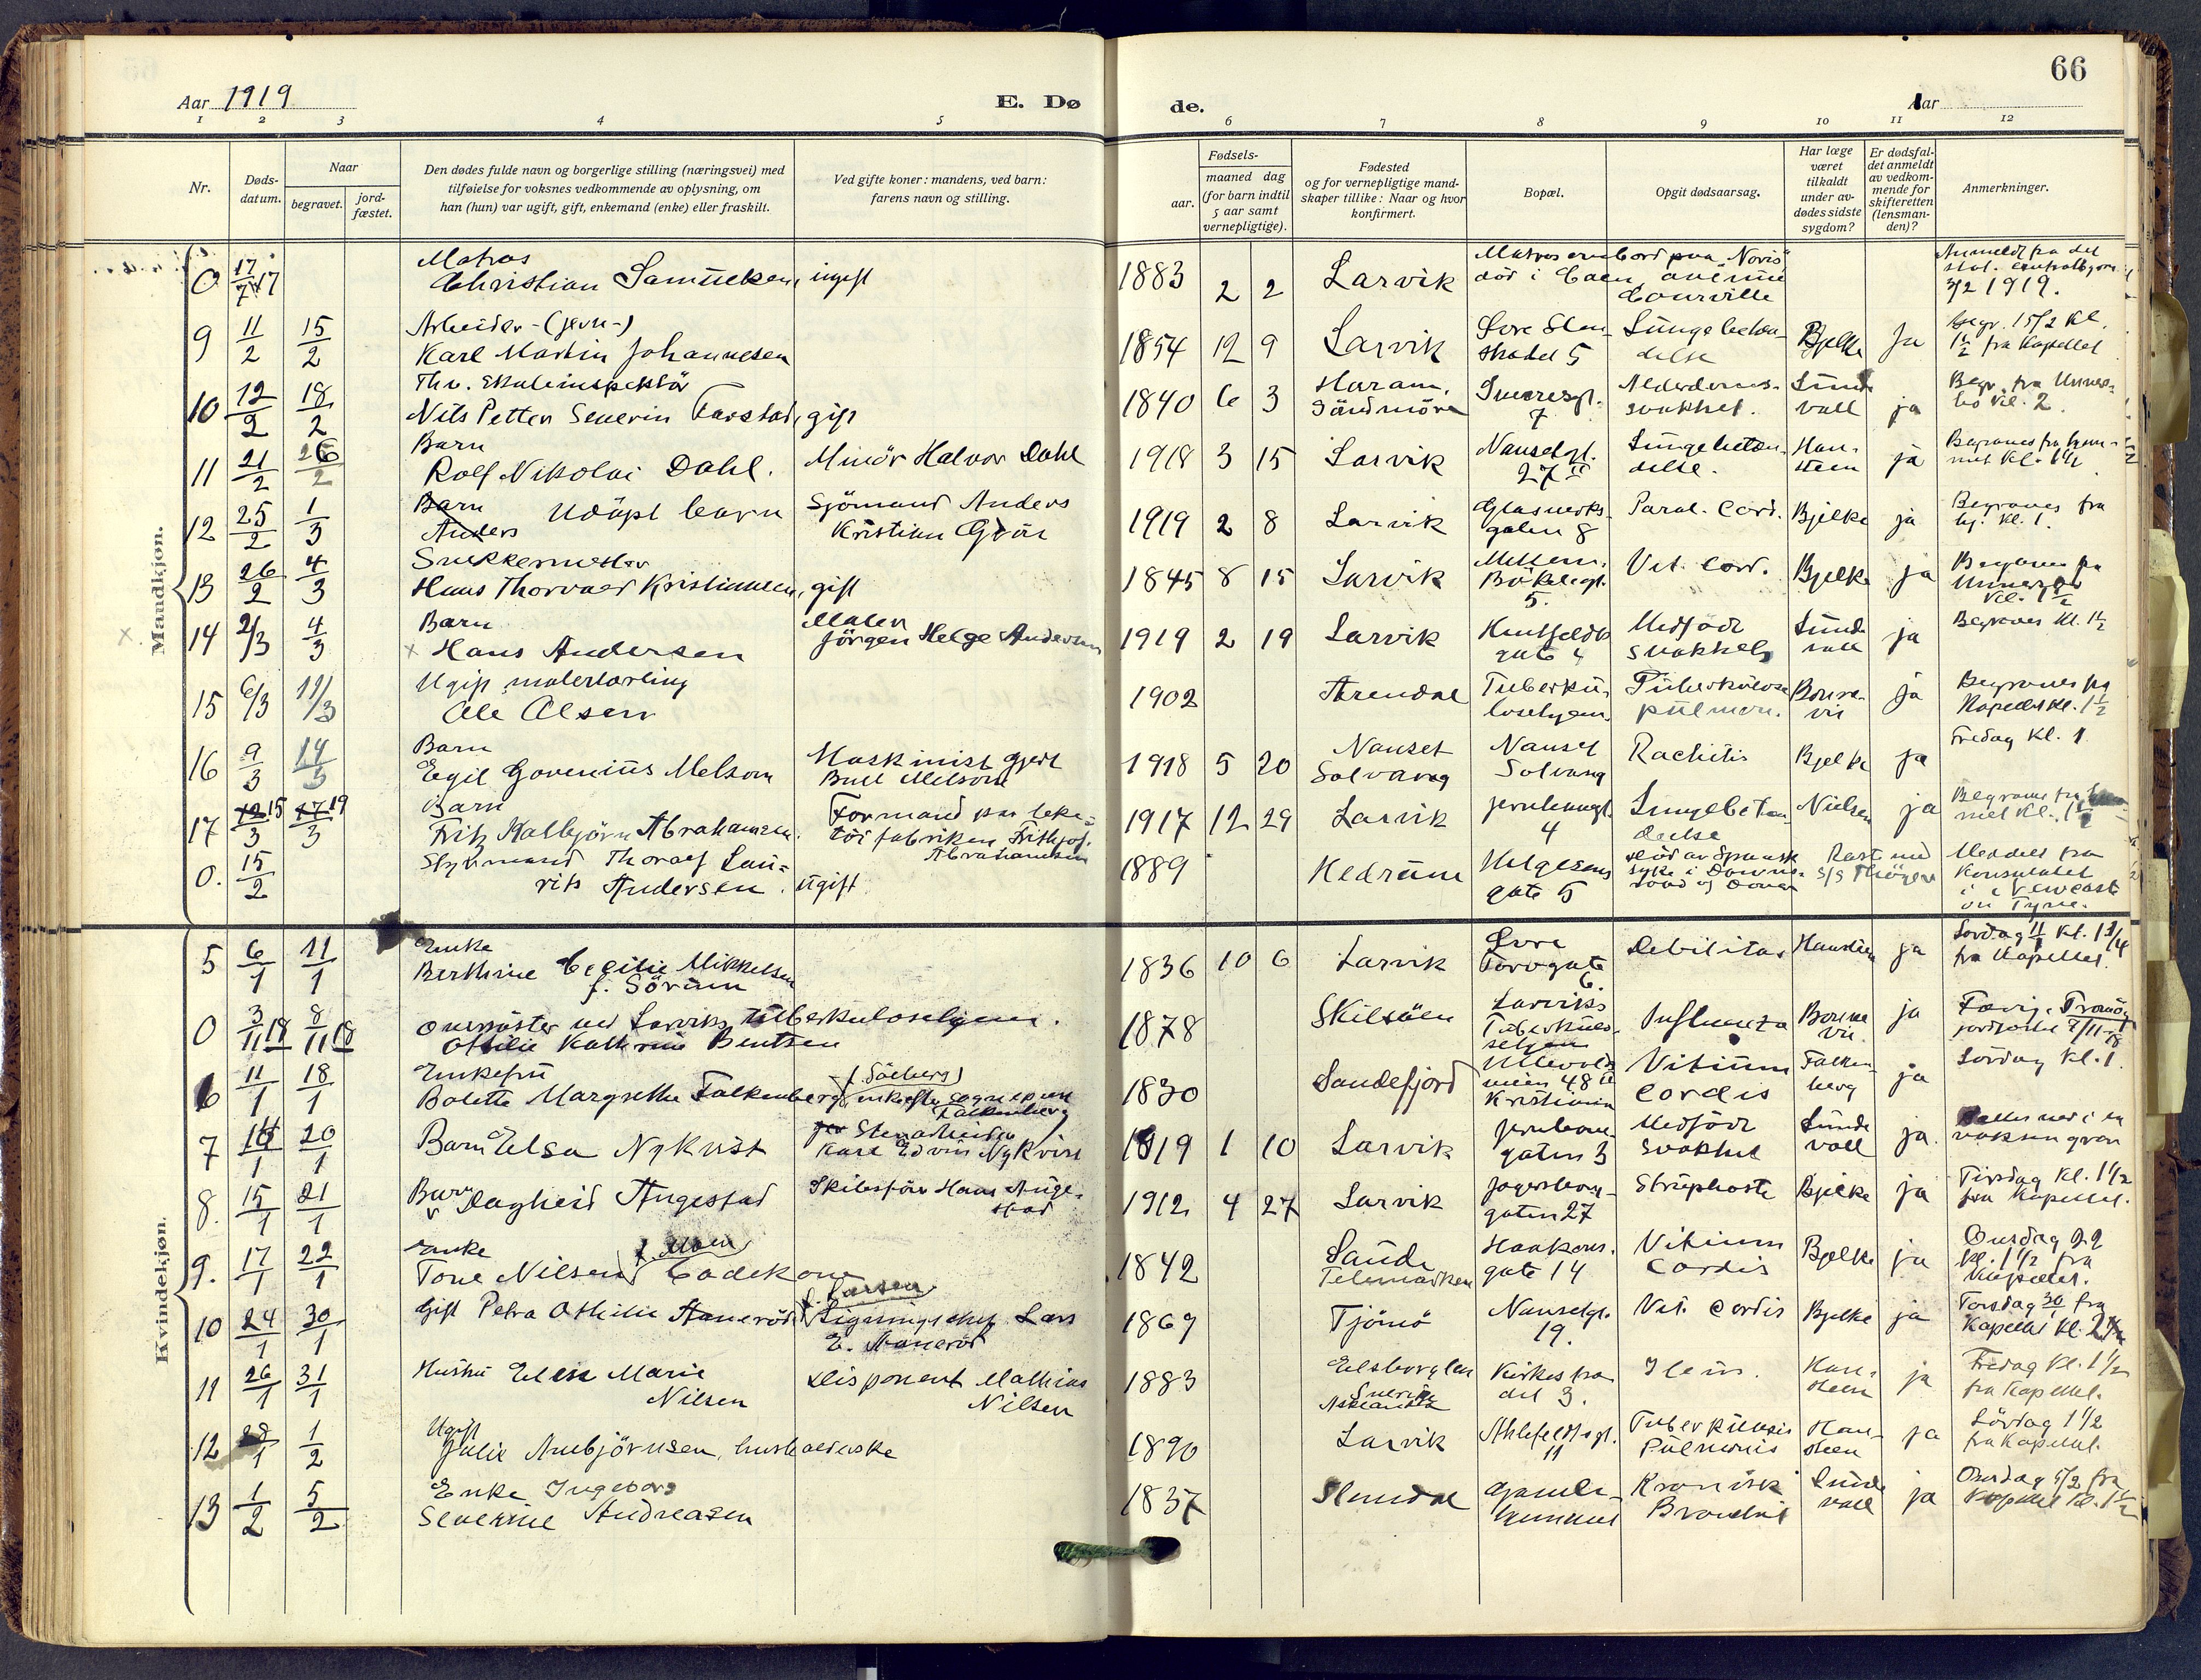 66
Aar 1919 E. Dø de. Aar
1 2 3 4 5 6 7 8 9 10 11 12
Nr.
Døds-
datum.
Naar
begravet.
jord-
fæstet.
Den dødes fulde navn og borgerlige stilling (næringsvei) med
tilføielse for voksnes vedkommende av oplysning, om
han (hun) var ugift, gift, enkemand (enke) eller fraskilt.
Ved gifte koner: mandens, ved barn:
farens navn og stilling.
Fødsels-
aar.
maaned dag
(for barn indtil
5 aar samt
vernepligtige).
Fødested
og for vernepligtige mand-
skaper tillike: Naar og hvor
konfirmert.
Bopæl.
Opgit dødsaarsag.
Har læge
været
tilkaldt
under av-
dødes sidste
sygdom?
Er dødsfal-
det anmeldt
av vedkom-
mende for
skifteretten
(lensman-
den)?
Anmerkninger.
Mandkjøn.
0 17/7 17 Matros
Christian Samuelsen, ugift 1883 2 2 Larvik Matros ombord paa "Novis"
død i Caen, avenue
Courville
Anmeldt fra det
3/2 1919.
9 11/2 15/2 Arbeider - (jern-)
Karl Martin Johannesen 1854 12 9 Larvik Øvre Sten-
stradet 5 Lungebeten-
delse Bjelke Ja Begr. 15/2 Kl.
1 1/2 fra Kapellet
10 12/2 18/2 Fhv. Skoleinspektør
Nils Petter Severin Farstad, gift 1840 6 3 Haram,
Söndmöre Sverresgt.
7 Alderdoms-
svakhet. Sunde
vall ja Begr. fra Unnes-
bo Kl. 2.
11 21/2 26/2 Barn
Rolf Nikolai Dahl. Minör Halvor Dahl 1918 3 15 Larvik Nansetgt.
27 II Lungebeten-
delse. Han-
steen ja Begraves fra hjem-
met Kl. 1 1/2
12 25/2 1/3 Barn Udöpt barn
Anders Sjömand Anders
Kristian 1919 2 8 Larvik Glasverks-
gaten 8 Paral. Cord. Bjelke ja Begraves fra
hj. Kl. 1.
13 26/2 4/3 Snekkermester
Hans Thorvald Kristiansen, gift 1845 8 15 Larvik Mellem.
Bökkergt.
5. Vit. Cord. Bjelke ja Begraves fra
Kl. 1 1/2
14 2/3 4/3 Barn
x Hans Andersen Maler
Jörgen Helge Andersen 1919 2 19 Larvik
gate 4 Medfödt
svakhet Sunde
vall ja Begraves Kl. 1 1/2
15 6/3 11/3 Ugift malerlærling
Ole Olsen 1902 Arendal Tuberku-
losehjem. Tuberkulose
pulmon. Bonne-
vie ja Begraves fra
Kapellet Kl. 1 1/2
16 9/3 14/3 Barn
Egil Govenius Melsom Maskinist Gjert
Bull Melsom 1918 5 20 Nanset
Solvang Nanset
Solvang Rachitis Bjelke ja Fredag Kl. 1
17 12 15/3 17 19/3 Barn
Fritz Asbjörn Abrahamsen. Formand paa leke-
töifabriken Frithjof
Abrahamsen 1917 12 29 Larvik Jernbanegt.
4 Lungebeten-
delse Nielsen ja Begraves fra hjem-
met Kl. 1 1/2
0. 15/2 Styrmand Thoralf Lau-
rits Andersen. Ugift 1889 Hedrum Helgesens
gate 5 död av Spansk
syke i Reist med
s/s Meddelt fra
Konsulatet
i Newcastle
on Tyne.
Kvindekjøn.
5 6/1 11/1 Enke
Berthine Cecilie Mikkelsen
f. Sörum 1836 10 6 Larvik Øvre
Torvgate
6. Debilitas Hansteen ja Lördag 11/1 Kl. 1 3/4
fra Kapellet.
0 3/11 18 8/11 18 Oversöster ved Larviks tuberkulosehjem.
Othilie Kathrine Bentsen 1878 Skilsöen Larviks
Tuberkulo-
sehjem Influenza Bonne
vie. ja
jordfæstet 8/11-18
6 11/1 18/1 Enkefru
Bolette Margrethe Falkenberg (f. Söeberg)
enke efter sogneprest
Falkenberg 1830 Sandefjord Ullevolds
veien 48 II
Kristiania Vitium
Cordis Falken-
berg ja Lördag Kl. 1.
7 14/1 20/1 Barn Elsa Nykvist Stenarbeider
Karl Edvin Nykvist 1919 1 10 Larvik Jernbane-
gaten 3 Medfödt
svakhet Sunde
vall ja. Sættes ned i en
voksen grav
8. 15/1 21/1 Barn Dagheid Angestad Skibsförer Hans Ange-
stad 1912 4 27 Larvik Jegersborg-
gaten 27 Strupehoste Bjelke ja Tirsdag Kl. 1 1/2
fra Kapellet.
9. 17/1 22/1 Enke
Tone Nilsen f. Moen Badekone 1842 Saude
Telemarken Haakons.
gate 14 Vitium
Cordis Bjelke ja Onsdag 22
Kl. 1 1/2 fra
Kapellet.
10 24/1 30/1 Gift Petra Othilie Aaneröd f. Larsen
Ligningschef Lars
E. Aaneröd 1869 Tjömö Nansetgt.
19. Vit. Cordis Bjelke ja Torsdag 30/1 fra
Kapellet Kl. 2
11 26/1 31/1 Hustru Elise Marie
Nilsen Disponent Mathias
Nilsen 1883 Elsborglen
Sverige Kirkestræ-
det 3. Ileus. Han-
steen ja Fredag Kl. 1 1/2
fra Kapellet.
12 28/1 1/2 Ugift
Julie Arnbjörnsen, husholderske 1890 Larvik Ahlefeldtsgt.
11 Tuberkulosis
Pulmonis Han-
steen ja Lördag 1 1/2
fra Kapellet.
13 1/2 5/2 Enke Ingeborg
Severine Andreasen 1837 Slemdal Gamle-
hjemmet Kronisk
Bronchit Sunde
vall ja Onsdag 5/2 fra
Kapellet Kl. 1 1/2